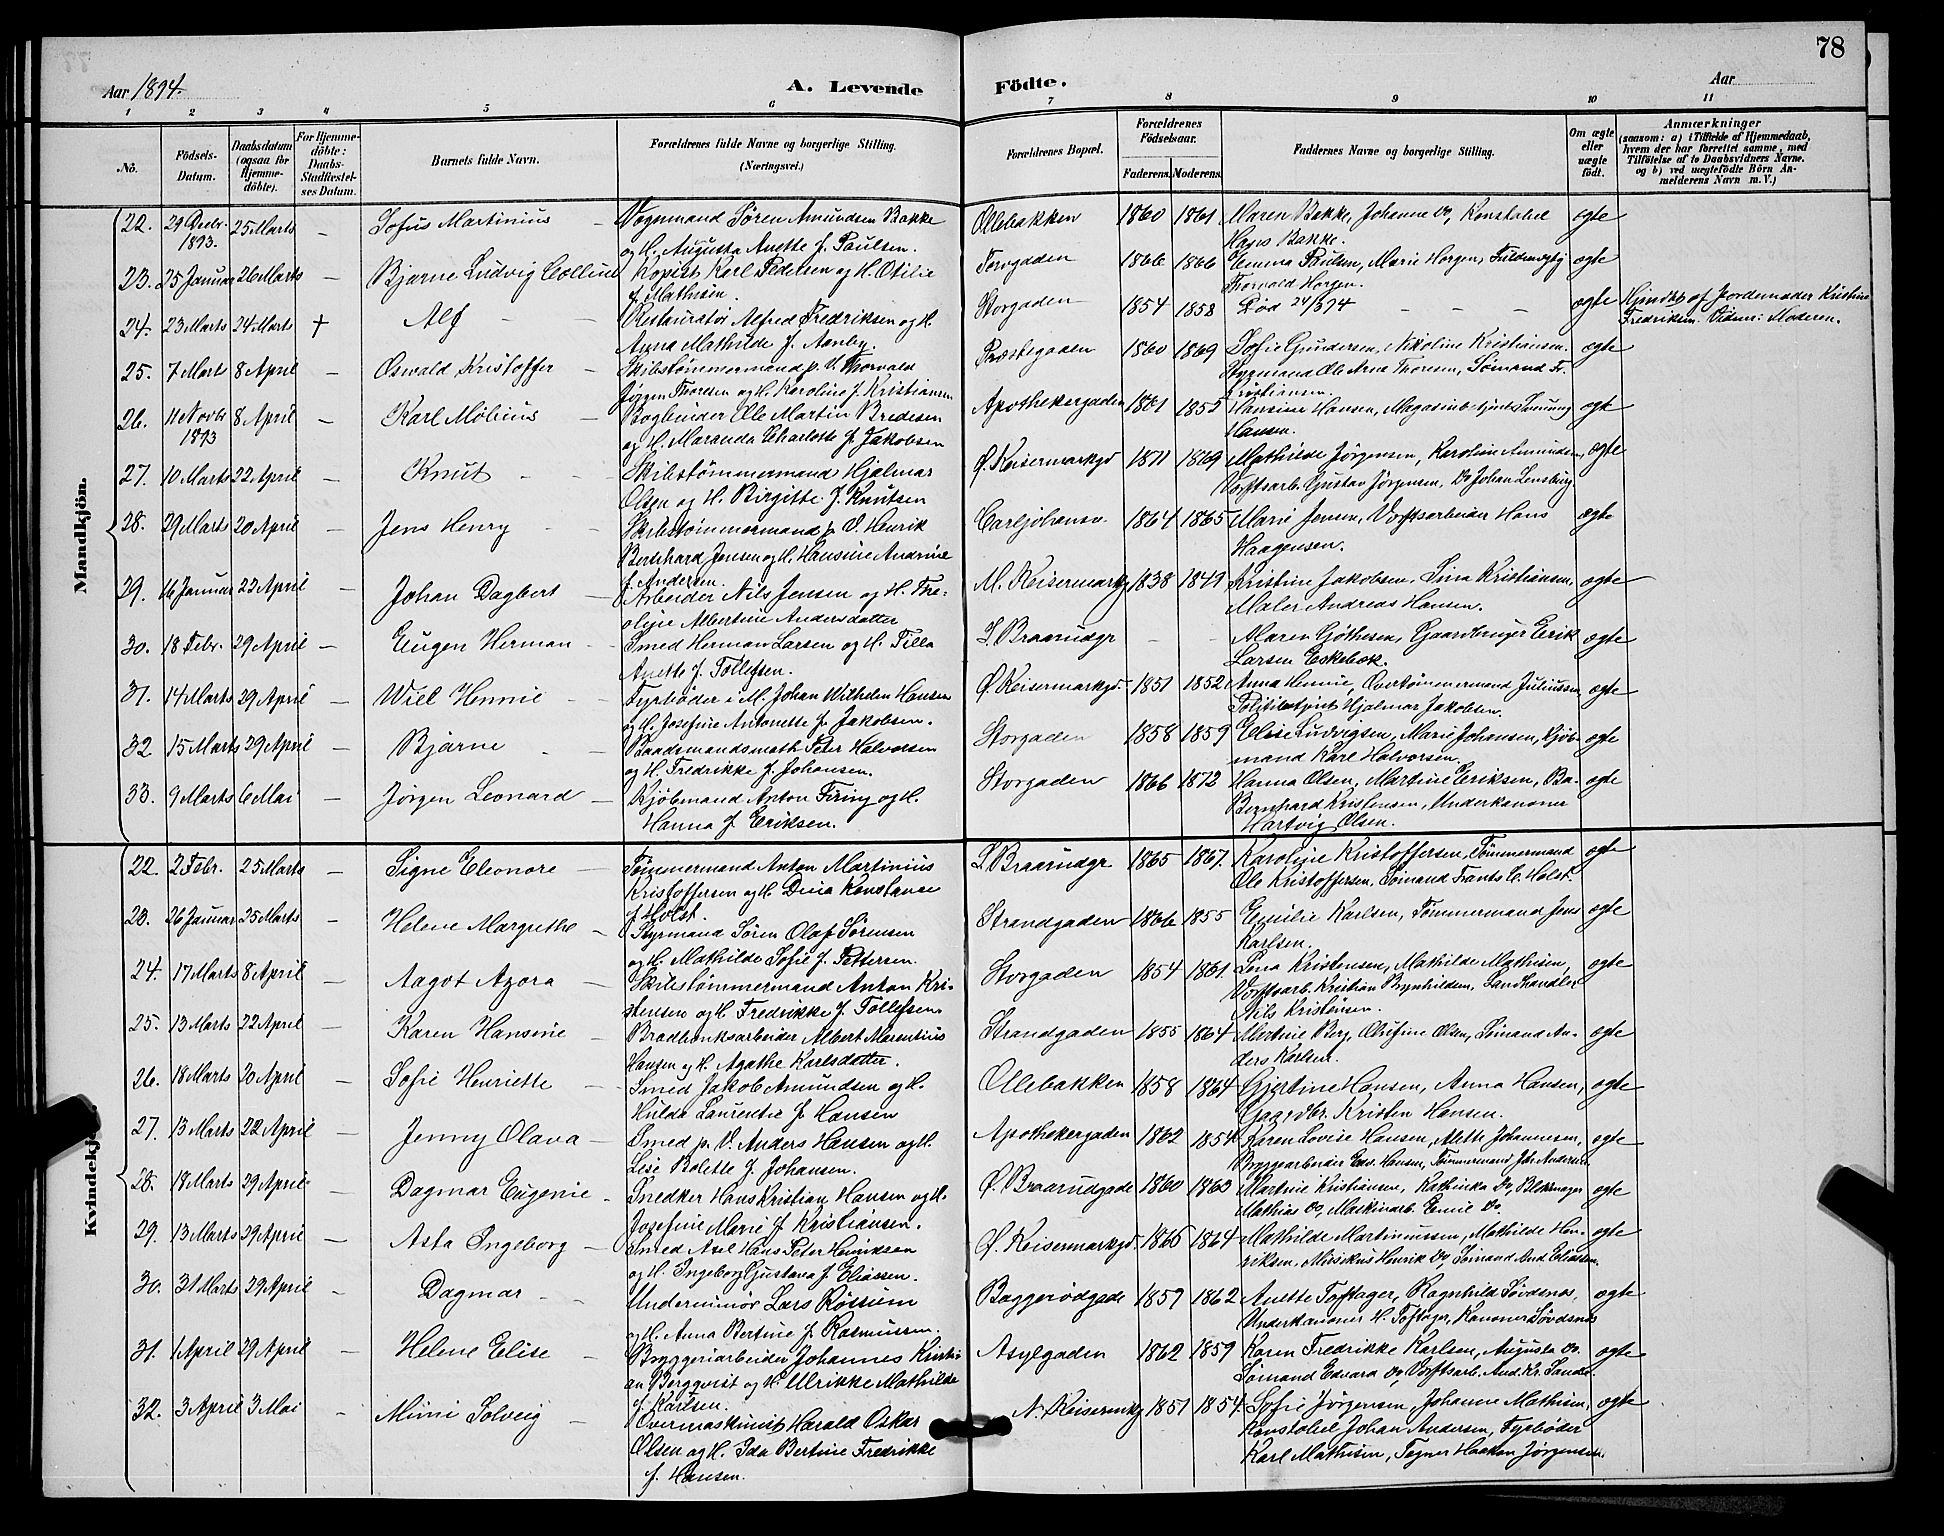 78
Aar 1894.
A. Levende
Födte.
Aar
1 2 3 4 5 6 7 8 9 10 11
No.
Födsels-Datum.
Daabsdatum (ogsaa for Hjemmedöbte).
For Hjemmedöbte: Daabs-Stadfæstelses Datum.
Barnets fulde Navn.
Forældrenes fulde Navne og borgerlige Stilling. (Næringsvei.)
Forældrenes Bopæl.
Forældrenes Födselsaar.
Faderens. Moderens.
Faddernes Navne og borgerlige Stilling.
Om ægte eller uægte födt.
Anmærkninger
(saasom: a) i Tilfælde af Hjemmedaab, hvem der har forrettet samme, med Tilföielse af to Daabsvidners Navne. og b) ved uægtefödte Börn Anmelderens Navn m. V.)
Mandkjön.
22. 29 Decbr. 1893. 25 Marts – Sofus Martinius – Vognmand Søren Amundsen Bakke
og H. Augusta Anette f. Paulsen.
Ollebakken 1860 1861 Maren Bakke, Johanne Do, Konstabel
Hans Bakke. ægte
23. 25 Januar 26 Marts – Bjarne Ludvig Collin Kopist Karl Pedersen og H. Otilie
f. Mathisen.
Torvgaden 1866 1866 Emma Paulsen, Marie Horgen, Fuldmægtig
Thorvald Horgen. ægte
24. 23 Marts 24 Marts + Alf – – Restauratør Alfred Fredriksen og H.
Anna Mathilde f. Aanby.
Storgaden 1854 1858 Død 24/3 94 – – – ægte Hjmdbt af Jordemoder Kristine
Fredriksen. Vidner: Moderen.
25. 7 Marts 8 April – Oswald Kristoffer – Skibstømmermand p. V. Thorvald
Jørgen Thoresen og H. Karoline f. Kristiansen
Præstegaden 1860 1869 Sofie Gundersen, Nikoline Kristiansen,
Styrmand Ole Arne Thoresen, Sømand Fr.
Kristiansen. ægte
26. 11 Novbr 1893 8 April – Karl Møbius – Bogbinder Ole Martin Bredesen
og H. Maranda Charlotte f. Jakobsen
Apothekergaden 1861 1855 Hansine Hansen,
Hansen. ægte
27. 10 Marts 22 April – Knut – – Skibstømmermand Hjalmar
Olsen og H. Birgitte f. Knutsen
Ø. Keisermarkgd 1871 1869 Mathilde Jørgensen, Karoline Amundsen,
Værftsarb. Gustav Jørgensen, Do Johan Lensberg ægte
28. 29 Marts 20 April – Jens Henry – Skibstømmermand p. V. Henrik
Bernhard Jensen og H. Hansine Andrine
f. Andersen.
Carljohansv. 1864 1865 Marie Jensen, Værftsarbeider Hans
Haagensen. ægte
29. 16 Januar 22 April – Johan Dagbert – Arbeider Nils Jensen og H. The-
olejne Albertine Andersdatter
M. Keisermarkg 1838 1849 Kristine Jakobsen, Lina Kristiansen,
Maler Andreas Hansen. ægte
30. 18 Febr. 29 April – Eugen Herman – Smed Herman Larsen og H. Tilla
Anette f. Tollefsen.
S. Braarudgr – – Maren Gjøthesen, Gaardbruger Erik
Larsen Eskebæk. ægte
31. 14 Marts 29 April – Wiel Hennie – Fyrbøder i M. Johan Wilhelm Hansen
og H. Josefine Antonette f. Jakobsen.
Ø. Keisermarkgd. 1851 1852 Anna Hennie, Overtømmermand Juliussen
Politibetjent Hjalmar Jakobsen. ægte
32 15 Marts 29 April – Bjarne – Baadsmandsmath Peter Halvorsen
og H. Fredrikke f. Johansen.
Storgaden 1858 1859 Elise Ludvigsen, Marie Johansen, Kjøb-
mand Karl Halvorsen. ægte
33. 9 Marts 6 Mai – Jørgen Leonard – Kjøbmand Anton Firing og H.
Hanna f. Eriksen.
Storgaden 1866 1872 Hanna Olsen, Martine Eriksen, Ba-
Bernhard Kristensen, Underkanoner
Hartvig Olsen. ægte
Kvindekj
22. 2 Febr. 25 Marts – Signe Eleonore – Tømmermand Anton Martinius
Kristoffersen og H. Dina Konstanse
f. Holst.
S. Braarudgr 1865 1867. Karoline Kristoffersen, Tømmermand
Ole Kristoffersen, Sømand Frants C. Holst. ægte
23. 26 Januar 25 Marts – Helene Margrethe – Styrmand Søren Olaf Sørensen
og H. Mathilde Sofie f. Pettersen.
Strandgaden 1866 1855 Emilie Karlsen, Tømmermand Jens
Karlsen. ægte
24. 17 Marts 8 April – Aagot Azora – Skibstømmermand Anton Kri-
stensen og H. Fredrikke f. Tollefsen.
Storgaden 1854 1861 Lina Kristensen, Mathilde Mathisen,
Værftsarb. Kristian Brynhildsen, Landhandler
Nils Kristensen. ægte
25. 13 Marts 22 April – Karen Hansine – Bradbænksarbeider Albert Marentius
Hansen og H. Agathe Karlsdatter.
Strandgaden 1855 1864 Martine Berg, Olufine Olsen, Sømand An-
ders Karlsen. ægte
26. 18 Marts 20 April – Sofie Henriette – Smed Jakob Amundsen og H.
Hulda Laurentze f. Hansen
Ollebakken 1858 1864 Gjertine Hansen, Anna Hansen,
Gaardbr. Kristen Hansen. ægte
27. 13 Marts 22 April – Jenny Olava – Smed p. V. Anders Hansen og H.
Lise Bolette f. Johansen.
Apothekergaden 1862 1854 Karen Lovise Hansen, Alette Johannesen,
Bryggearbeider Edv. Hansen, Tømmermand Joh. Andersen. ægte
28. 18 Marts 29 April – Dagmar Eugenie – Snedker Hans Kristian Hansen og H.
Josefine Marie f. Kristiansen.
Ø. Braarudgade 1860 1863 Martine Kristiansen, Kathinka Do, Blokmager
Mathias Do, Maskinarb. Emil Do. ægte
29. 13 Marts 29 April – Asta Ingeborg – Smed Axel Hans Peter Henriksen
og H. Ingeborg Gustava f. Eliassen.
Ø. Keisermarkgd. 1866 1864 Mathilde Martinussen, Mathilde Hen-
riksen, Musikus Henrik Do, Sømand And. Eliassen. ægte
30. 31 Marts 29 April – Dagmar – Underminør Lars Røssum
og H. Anna Bertine f. Rasmussen.
Baggerødgade 1859 1862 Anette Toftager, Ragnhild Løvdsnes,
Underkanoner H. Toftager, Kanoner Løvdsnes ægte
31. 1 April 29 April – Helene Elise – Bryggeriarbeider Johannes Kristi-
an Bergqvist og H. Ulrikke Mathilde
f. Karlsen.
Asylgaden 1862 1859 Karen Fredrikke Karlsen, Augusta Do,
Sømand Edvard Do, Værftsarb. And. Kr. Sande. ægte
32. 3 April 3 Mai – Mimi Solveig – Overmaskinist Harald Oskar
Olsen og H. Ida Bertine Fredrikke
f. Hansen.
N. Keisermkg 1851 1854 Sofie Jørgensen, Johanne Mathisen,
Konstabel Johan Andersen, Fyrbøder
Karl Mathisen, Tegner Haakon Jørgensen. ægte